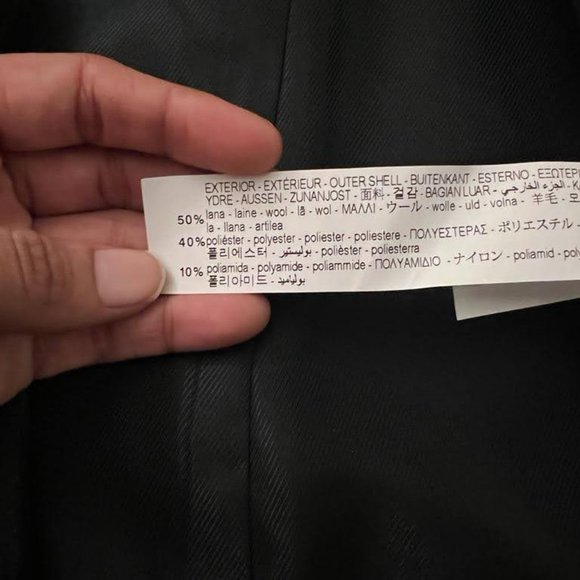 EXTERIOR - EXTÉRIEUR - OUTER SHELL - BUITENKANT - ESTERNO - ΕΞΩΤΕΡΙ
YDRE - AUSSEN - ZUNANJOST - 面料 - 겉감 - BAGIAN LUAR - الجزء الخارجي - K
50% lana - laine - wool - lã - wol - ΜΑΛΛΙ - ウール - wolle - uld - volna - 羊毛 - 모
la - llana - artilea
40% poliéster - polyester - poliester - poliestere - ΠΟΛΥΕΣΤΕΡΑΣ - ポリエステル -
폴리에스터 - بوليستير - polièster - poliesterra
10% poliamida - polyamide - poliammide - ΠΟΛΥΑΜΙΔΙΟ - ナイロン - poliamid - poly
폴리아미드 - بوliاميد